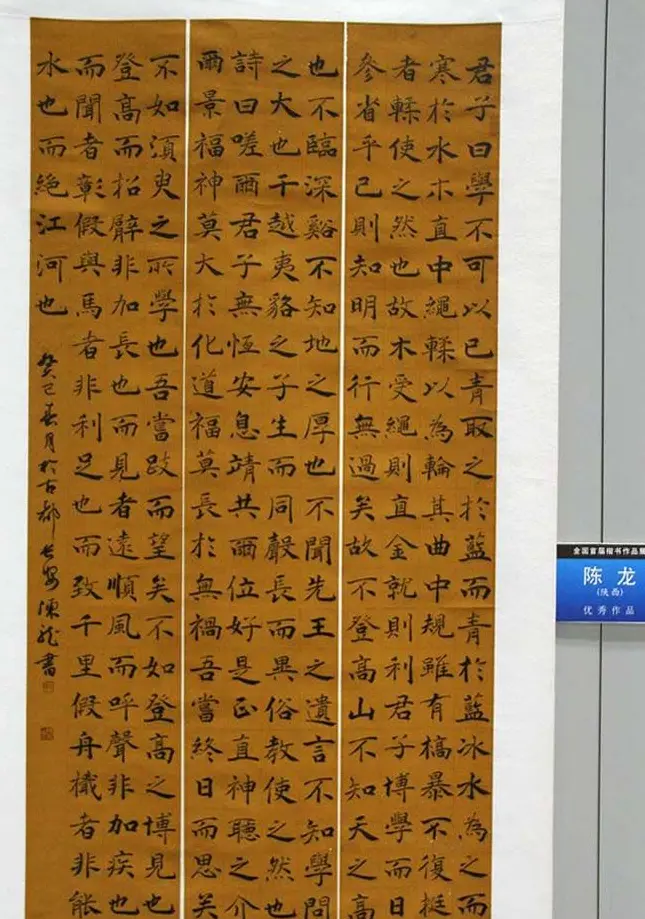 君子曰學不可以已青取之於藍而青於藍冰水為之而
寒於水木直中繩輮以為輪其曲中規雖有槁暴不復挺
者輮使之然也故木受繩則直金就則利君子博學而日
參省乎己則知明而行無過矣故不登高山不知天之高
也不臨深谿不知地之厚也不聞先王之遺言不知學問
之大也干越夷貉之子生而同聲長而異俗教使之然也
詩曰嗟爾君子無恆安息靖共爾位好是正直神聽之介
爾景福神莫大於化道福莫長於無禍吾嘗終日而思矣
不如須臾之所學也吾嘗跂而望矣不如登高之博見也
登高而招臂非加長也而見者遠順風而呼聲非加疾也
而聞者彰假輿馬者非利足也而致千里假舟檝者非能
水也而絕江河也
癸巳春月於古都長安陳龍書
全国首届楷书作品展
陈龙
(陕西)
优秀作品